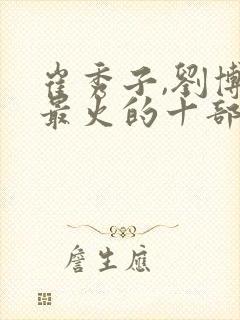 崔秀子,劉博
最火的十部
詹生應